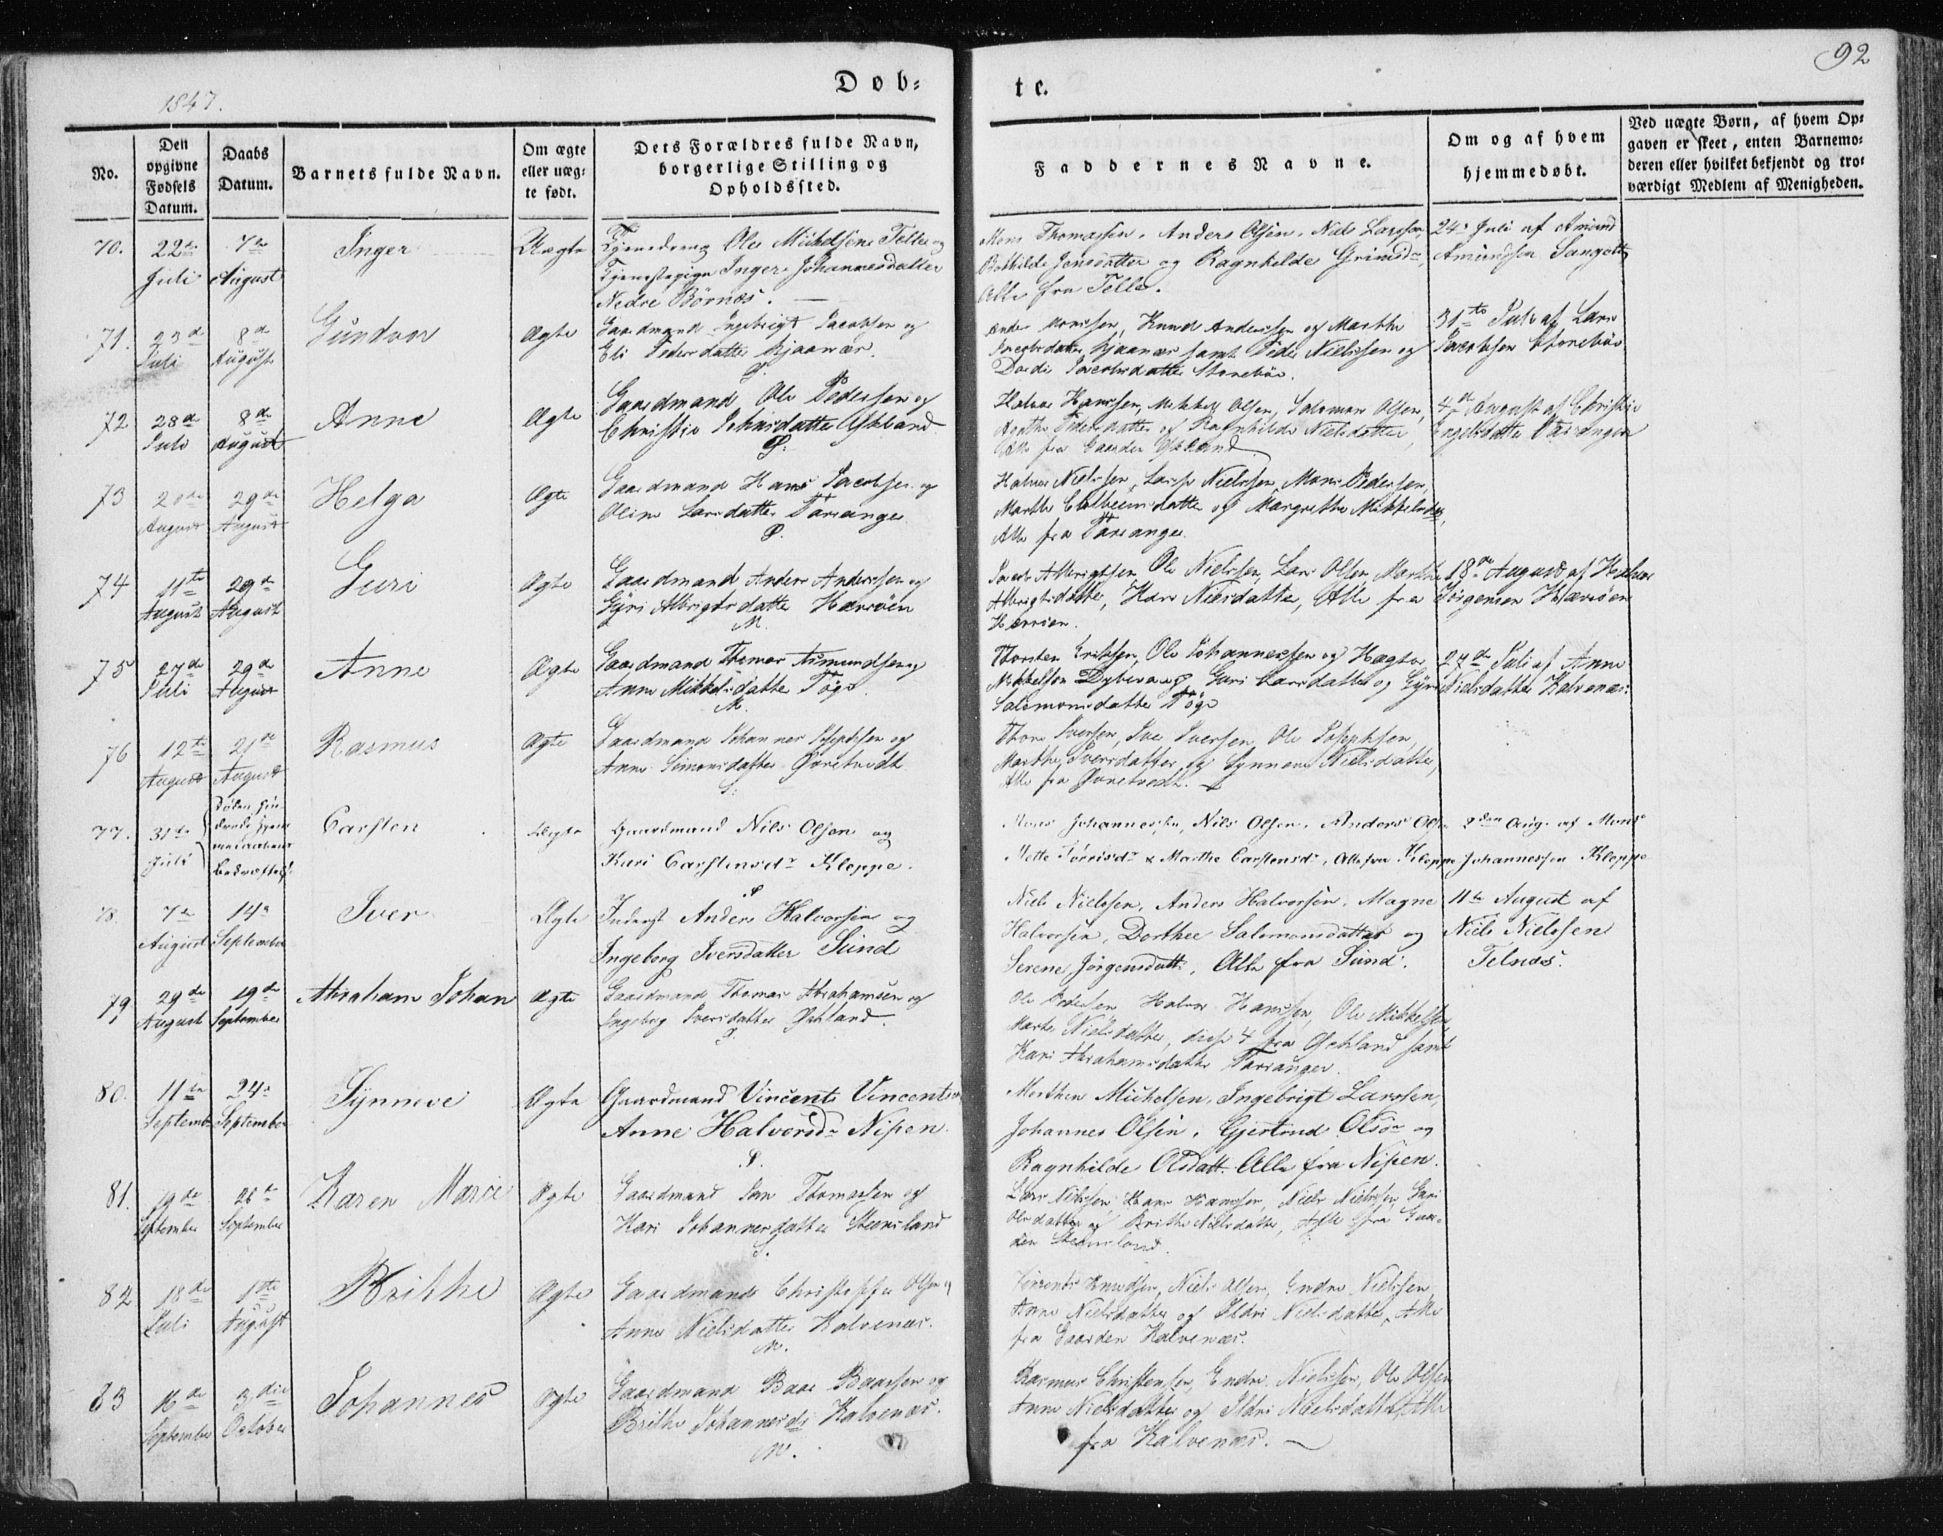 92
1847.
Døb-
te.
No.
Den opgivne Fødsels Datum.
Daabs Datum.
Barnets fulde Navn.
Om ægte eller uæg- te født.
Dets Forældres fulde Navn, borgerlige Stilling og Opholdssted.
Faddernes Navne.
Om og af hvem hjemmedøbt.
Ved uægte Børn, af hvem Op- gaven er skeet, enten Barnemo- deren eller hvilket bekjendt og tro- værdigt Medlem af Menigheden.
70. 22de Juli
7de August
Inger
Uægte
Ole Michelsen Telle og
Tjenestepige Inger Johannesdatter
Nedre Børnæs.
Mons Thomassen, Anders Olsen, Niels Larssen,
Bothilde Jonsdatter og Ragnhilde Grimsdr,
Alle fra Telle.
24de Juli af Amund
Amundsen
71. 23de Juli
8de August
Gundvor
Ægte
Gaardmand Ingebrigt Jacobsen og
Eli Pedersdatter
Monssen, Knud Anderssen og Marthe
Jacobsdatter samt Peder Nielssen og
Jacobsdatter Storebøe.
31te Juli af Lars
Jacobsen Storebøe
72 28de Juli
8de August
Anne
Ægte
Gaardmand Ole Pederssen og
Christie Johnsdatter
P.
Halvor Hanssen, Mikkel Olsen, Salomon Olsen,
Pedersdatter og Ragnhilde Nielsdatter,
Alle fra Gaarden
4de August af Christie
Engelsdatter Varanger
73
August
29de August
Helga
Ægte
Gaardmand Hans Jacobsen og
Oline Larsdatter
P.
Halvor Nielssen, Lars Nielssen, Mons Pederssen,
Marthe og Margrethe Mikkelsdr,
Alle fra
74 11te August
29de August
Guri
Ægte
Gaardmand Anders Anderssen og
Gyri Albrigtsdatter Horsøen
M.
Jacob Albrigtsen, Ole Nielssen, Lars Olsen, Marthe
Albrigtsdatter, Kari Nielsdatter, Alle fra
18de August af
Jørgensen
75 27de Juli
29de August
Anne
Ægte
Gaardmand Thomas Amundsen og
Anne Mikkelsdatter
M.
Thorsten Erikssen, Ole Johannessen og
Mikkelsen Guri Larsdatter og Gyri
Salomonsdatter
27de Juli af Anne
Nielsdatter Kalvenæs
76 12te August
21de August
Rasmus
Ægte
Gaardmand Johannes Josephsen og
Anne Simonsdatter
Iversen, Iver Iversen, Ole Josephsen,
Marthe Iversdatter og Synneve Nielsdatter,
Alle fra
77. 31te Juli
Carsten
Ægte
Gaardmand Nils Olsen og
Kari Carstensdr Kleppe.
Mons Johannessen, Nils Olsen, Anders
Mette & Marthe Carstensdr, Alle fra Kleppe
2den Aug. af Mons
Johannessen Kleppe
78. 7de August
14de September
Iver
Ægte
Inderst Anders Halvorsen og
Ingeborg Iversdatter Sund
Niels Nielssen, Anders Halvorsen, Magne
Halvorsen, Dorthee Salomonsdatter og
Serene Jørgensdatt. Alle fra Sund.
11te August af
Niels Nielssen
Telnæs.
79 29de August
19de September
Abraham Johan
Ægte
Gaardmand Thomas Abrahamsen og
Ingeborg Iversdatter
Ole Halvor Hanssen, Ole Mikkelsen
Marthe Nielsdatter, disse 4 fra samt
Kari Abrahamsdatter
80. 11te September
24de September
Synneve
Ægte
Gaardmand Vincents Vincentsen
Anne Halvorsdr Nipen
P.
Morthen Michelsen, Ingebrigt Larssen,
Johannes Olsen, Gjertrud Olsdr og
Ragnhilde Olsdatt. Alle fra Nipen.
81. 19de September
26de September
Karen Marie
Ægte
Gaardmand Thomassen og
Kari Johannesdatter Steensland
Lars Nielssen, Hans Hanssen, Niels Nielssen, Guri
Olsdatter og Brithe Nielsdatter, Alle fra Gaar-
den Steensland.
82 18de Juli
1ste August
Brithe
Ægte
Gaardmand Christopher Olsen og
Anne Nielsdatter Kalvenæs.
M.
Vincents Knudsen, Niels Olsen, Endre Nielssen,
Anne Nielsdatter og Ildri Nielsdatter, Alle
fra Gaarden Kalvenæs.
83 16de September
3die October
Johannes
Ægte
Gaardmand Baar Baarsen og
Brithe Johannesdr Kalvenæs.
M.
Rasmus Christensen, Endre Nielssen, Ole Olsen
Anne Nielsdatter og Ildri Nielsdatter, Alle
fra Kalvenæs.